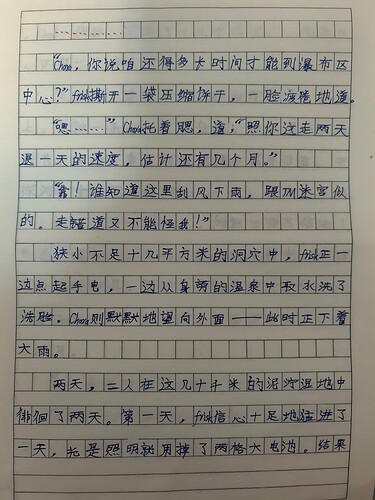 …………
"Chara，你说咱还得多长时间才能到瀑布区
中心？"frisk撕开一袋压缩饼干，一脸疲惫地道。
"嗯……"Chara托着腮，道，"照你这走两天
退一天的速度，估计还有几个月。"
"害！谁知道这里刮风下雨，跟TM迷宫似
的。走错道又不能怪我！"
狭小不足十几平方米的洞穴中，frisk正一
边点起手电，一边从身旁的温泉中取水洗了
洗脸。Chara则默默地望向外面——此时正下着
大雨。
两天，二人在这几十千米的泥泞湿地中
徘徊了两天。第一天，frisk信心十足地猛进了
一天，光是照明就用掉了两格大电池。结果